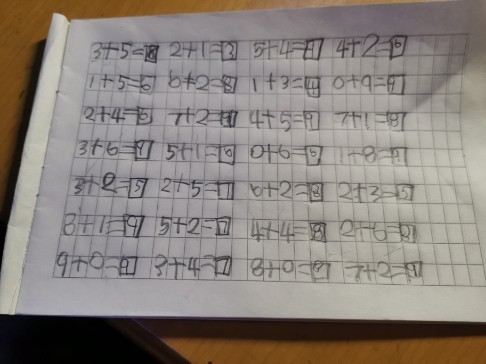 3+5=8 2+1=3 5+4=9 4+2=6
1+5=6 6+2=8 1+3=4 0+9=9
2+4=6 7+2=9 4+5=9 7+1=8
3+6=9 5+1=6 0+6=5 1+8=9
3+2=5 2+5=7 6+2=8 2+3=5
8+1=9 5+2=7 4+4=8 2+6=8
9+0=9 3+4=7 8+0=8 7+2=9